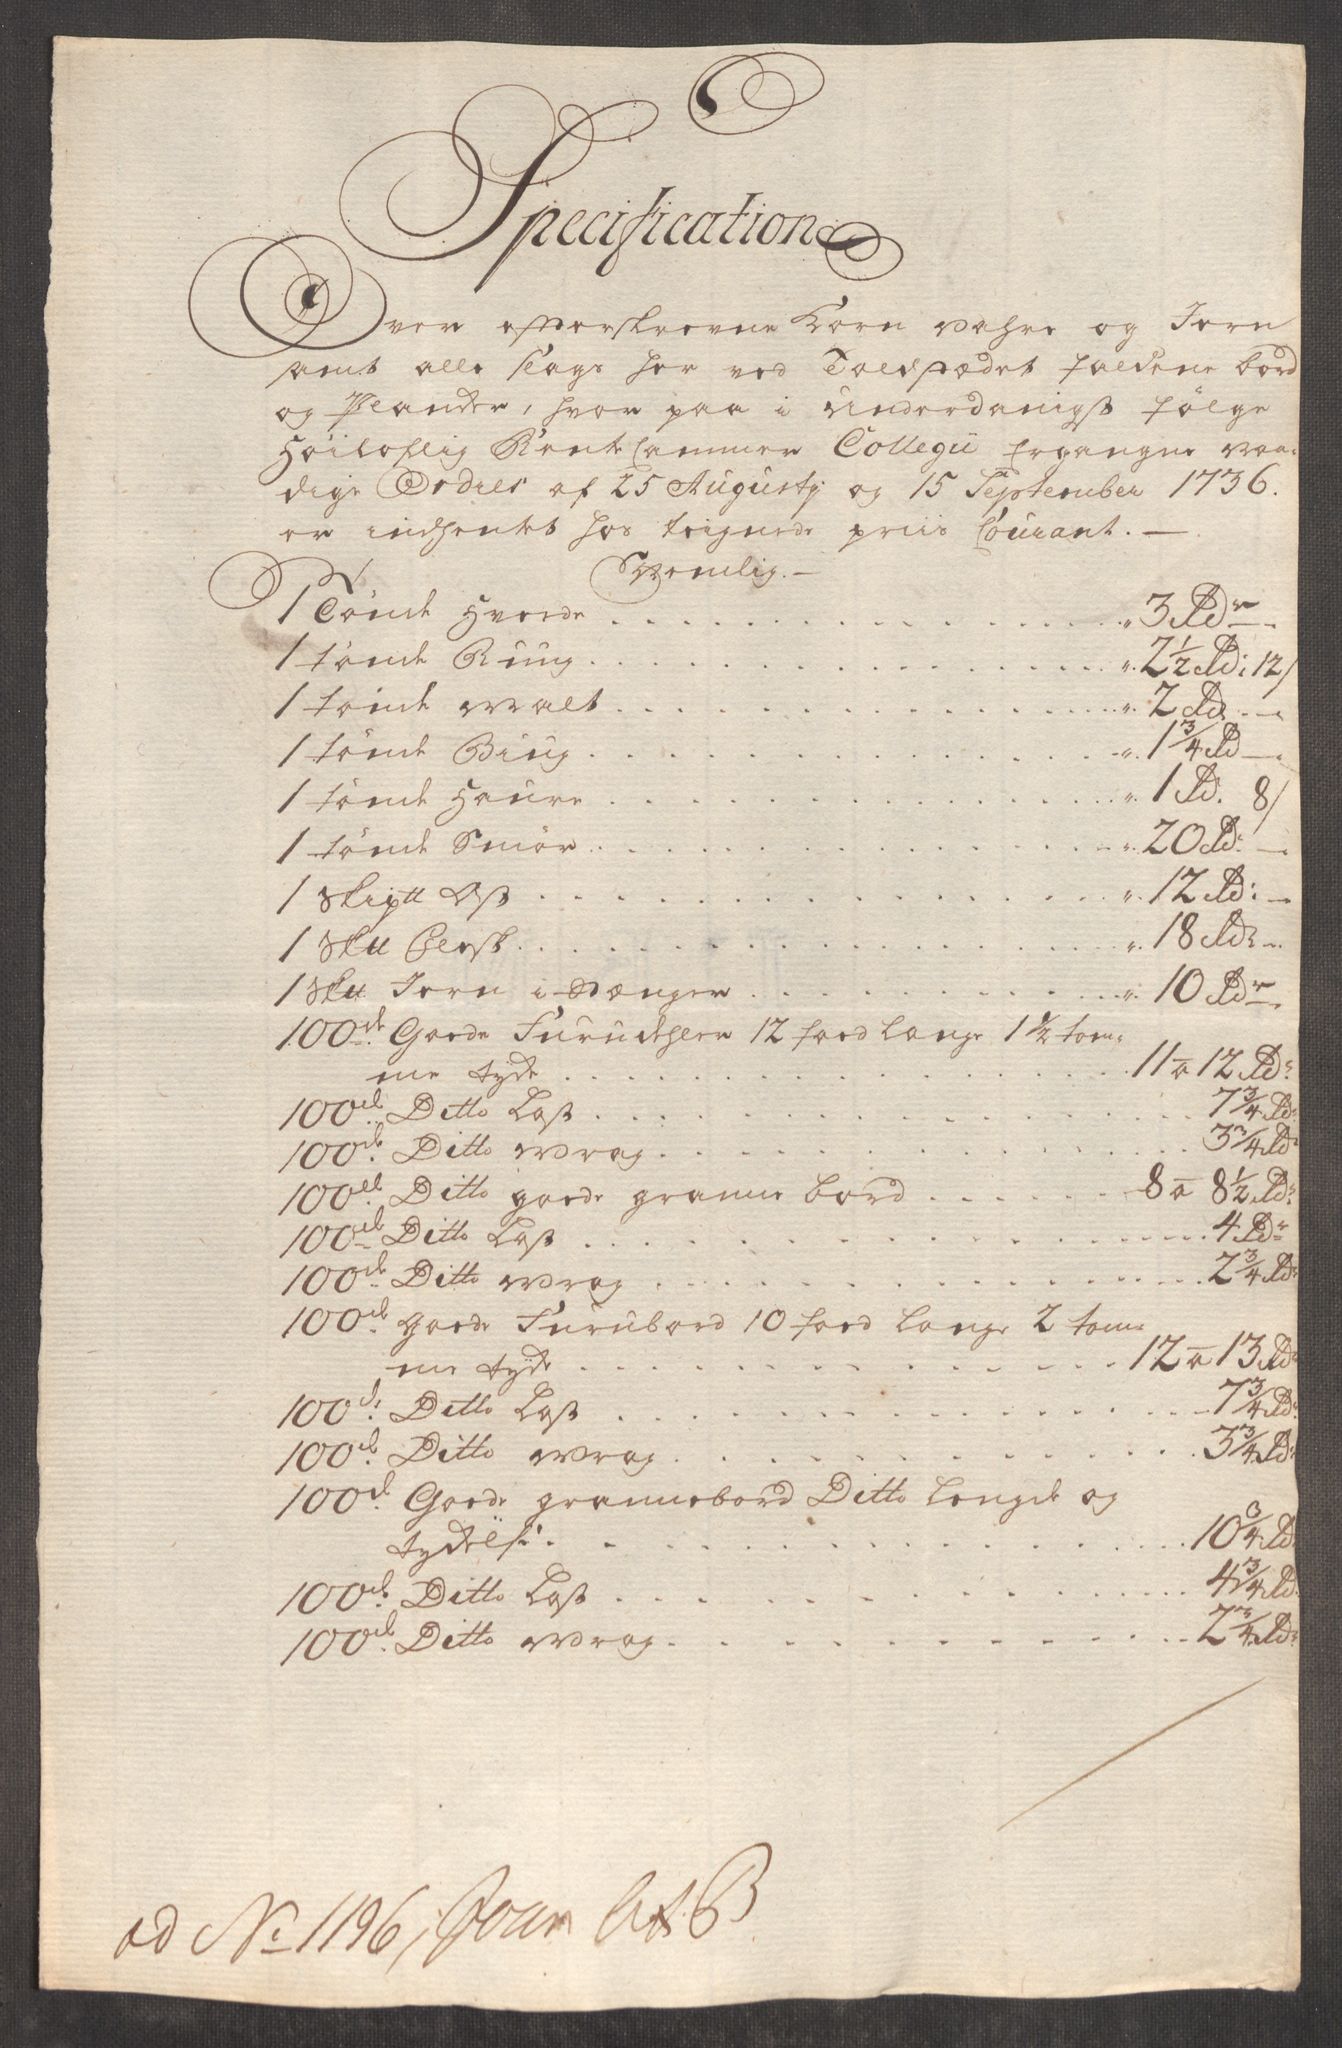 Specification
Over efterskrevne Korn vahre og Jern
samt alle slags her ved Toldstædet faldene bord
og Plancker, hvor paa i underdanigst følge
Høiloflig Rente Cammer Collegii Ergangne naa-
dige Ordres af 25 Augusty og 15 September 1736.
er indhentet hos teignede priis Courant. —
Nemlig. —
1 Tönde Hvede . . . 3 Rdr —
1 tönde Rüug . . . 2½ Rd: 12/
1 tönde Malt . . . 2 Rd. —
1 tönde Biug . . . 1¾ Rd —
1 tönde Haure . . . 1 Rd. 8/
1 tönde Smör . . . 20 Rd: —
1 Skiptt Ost . . . 12 Rd: —
1 Sktt Flesk . . . 18 Rdr —
1 Sktt Jern i Stænger . . . 10 Rdr —
100de Goede Furudehler 12 foed lange 1½ tom-
me tyde . . . 11 a 12 Rdr
100de Ditto Last . . . 7¾ Rdr
100de Ditto Wrag . . . 3¾ Rd
100de Ditto goede granne bord . . . 8 a 8½ Rdr
100de Ditto Last . . . 4 Rdr
100de Ditto Wrag . . . 2¾ Rdr
100de goede Furubord 10 foed lange 2 tom-
me tyde . . . 12 a 13 Rdr
100d: Ditto Last . . . 7¾ Rdr
100de Ditto Wrag . . . 3¾ Rdr
100d. Goede grannebord Ditto Lengde og
tydelse . . . 10¾ Rd.
100de Ditto Last . . . 4¾ Rd.
100de Ditto Wrag . . . 2¾ Rdr
ad No 1196, Jour Lit. B